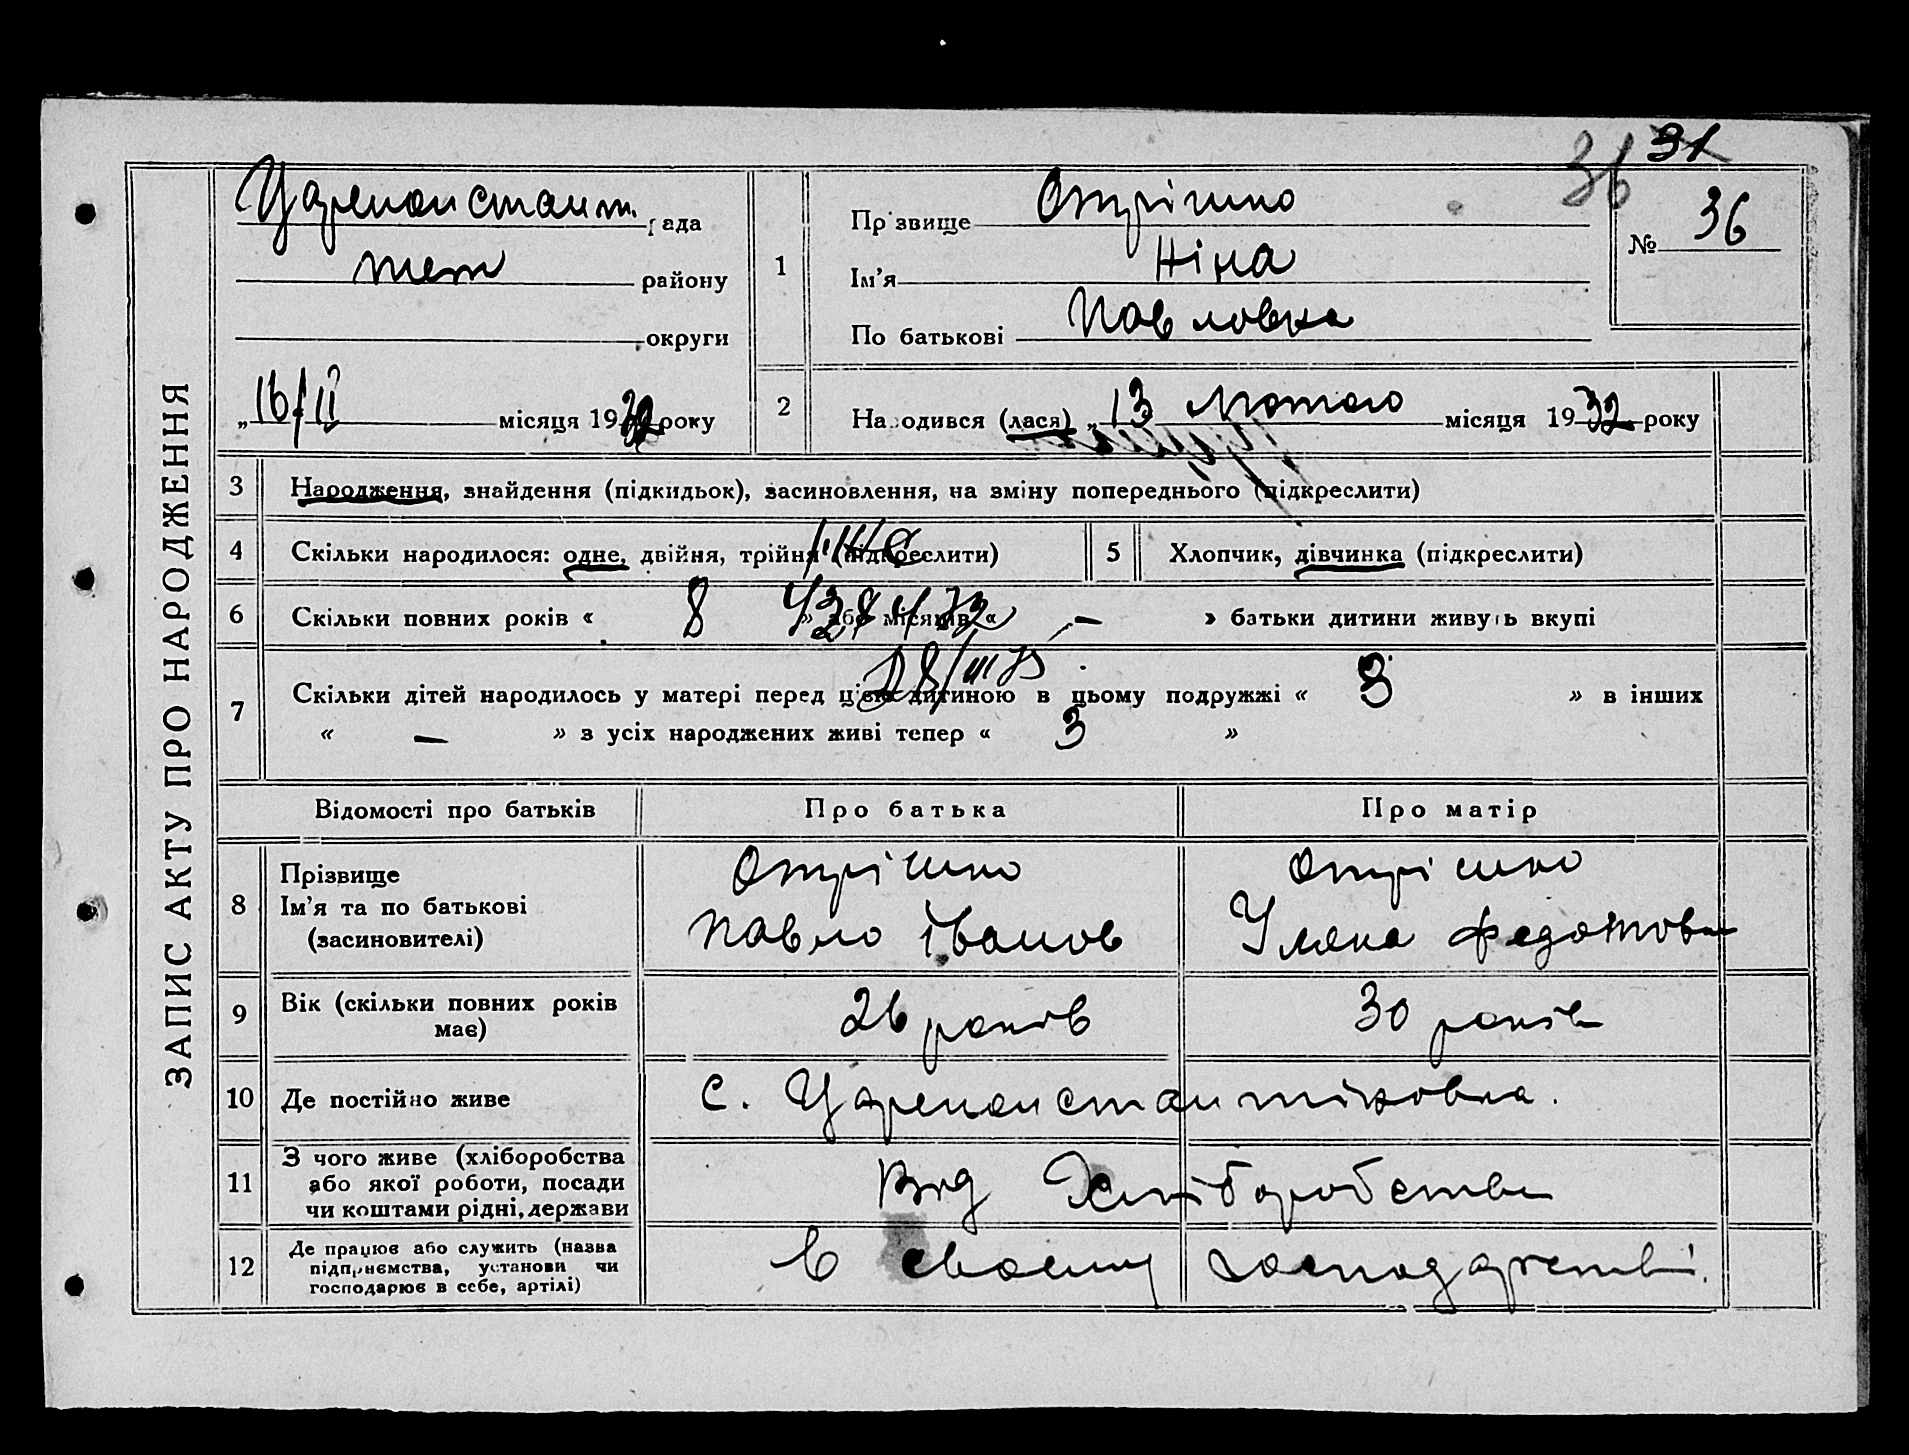 ЗАПИС АКТУ ПРО НАРОДЖЕННЯ
36 31
Цареконстант. рада
теж району
округи
„16/II місяця 1932 року
1
Прізвище Отрішко
Ім'я Ніна
По батькові Павловна
№ 36
2 Народився (лася) „13 Лютого місяця 1932 року
3 Народження, знайдення (підкидьок), засиновлення, на зміну попереднього (підкреслити)
4 Скільки народилося: одне, двійня, трійня (підкреслити) 5 Хлопчик, дівчинка (підкреслити)
6 Скільки повних років « 8 » або місяців « — » батьки дитини живуть вкупі
28/III 73
7 Скільки дітей народилось у матері перед цією дитиною в цьому подружжі « 3 » в інших
« — » з усіх народжених живі тепер « 3 »
Відомості про батьків Про батька Про матір
8 Прізвище Отрішко Отрішко
Ім'я та по батькові Павло Іванов Уляна Федотовн
(засиновителі)
9 Вік (скільки повних років має) 26 років 30 років
10 Де постійно живе с. Цареконстантіновка.
11 З чого живе (хліборобства
або якої роботи, посади Від Хліборобства
чи коштами рідні, держави
12 Де працює або служить (назва
підприємства, установи чи В своєму господарстві.
господарює в себе, артілі)